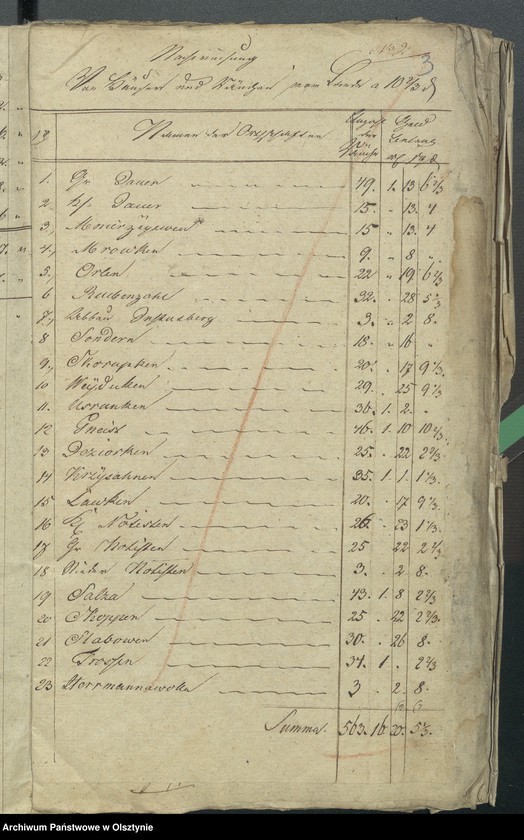 No 2.
3
Nachweisung
Von Häuser und Räucher vom Lande a 10 2/3 d
No Namen der Ortschaften Anzahl der Räucher Geld rf sg d
1. Gr Dauen 49. 1. 13 6 2/3
2. Kl. Dauen 15. " 13. 4
3. 15 " 13. 4
4. Mrowken 9. " 8 "
5. Orlen 22 " 19 6 2/3
6 Rübenzahl 32. " 28 5 1/3
7. 3. " 2 8.
8 Sondern 18. " 16 "
9. Skorupken 20. " 17 9 1/3
10 Weydicken 29. " 25 9 1/3
11. Usranken 36. 1. 2. "
12 Gneist 46. 1. 10 10 2/3
13 Dziorken 25. " 22 2 2/3
14 Krzysahnen 35. 1. 1. 1 1/3
15 Lawken 20. " 17 9 1/3
16 Kl Notisten 26. " 23 1 1/3
17 Gr Notisten 25 " 22 2 2/3
18 Nieder Notisten 3. " 2 8.
19 Salza 43. 1. 8 2 2/3
20 Skoppen 25 " 22 2 2/3
21 Stabowen 30. " 26 8.
22 Trossen 34. 1. " 2 2/3
23 Herrmannawolla 3 " 2. 8.
Summa. 563. 16. 20. 5 1/3.
Archiwum Państwowe w Olsztynie